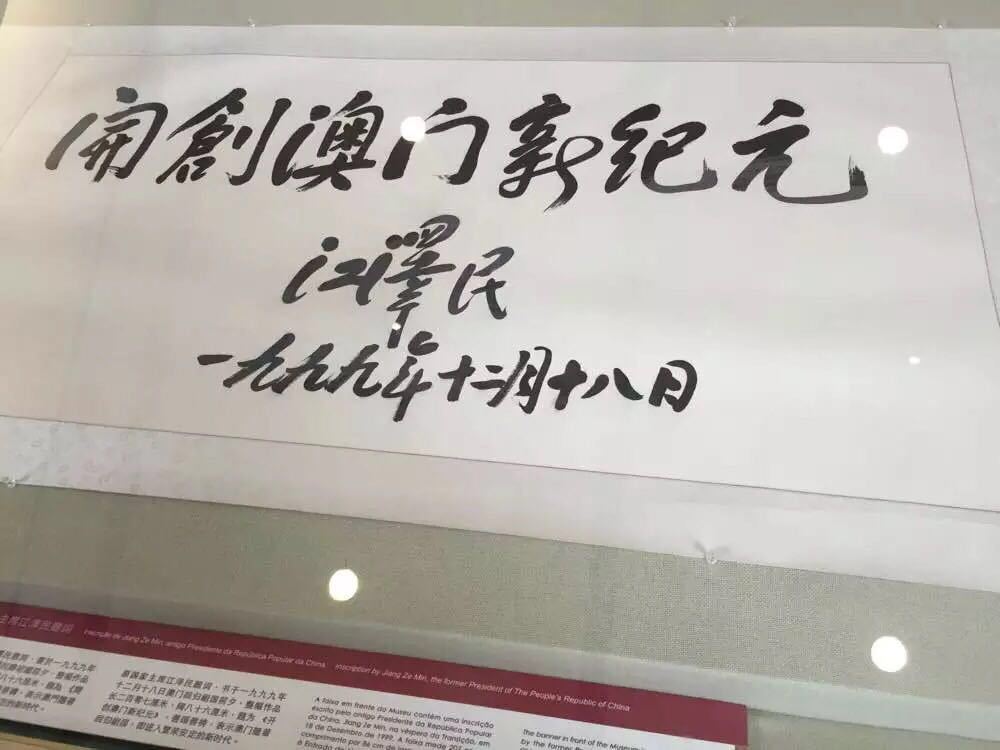 開創澳门新纪元
江澤民
一九九九年十二月十八日
主席江澤民題詞 Inscrição de Jiang Ze Min, antigo Presidente da República Popular da China. Inscription by Jiang Ze Min, the former President of The People's Republic of China
原国家主席江泽民题词，书于一九九九年
十二月十八日澳门回归祖国前夕，整幅作品
长二百零七厘米，阔八十六厘米，题为《开
创澳门新纪元》，善颂善祷，表示澳门随着
回归祖国，即进入繁荣安定的新时代。
A faixa em frente do Museu contém uma inscrição
escrita pelo antigo Presidente da República Popular
da China, Jiang Ze Min, na véspera da Transição, em
18 de Dezembro de 1999. A faixa mede 207 cm
comprimento por 86 cm de
The banner in front of the Museum
by the former